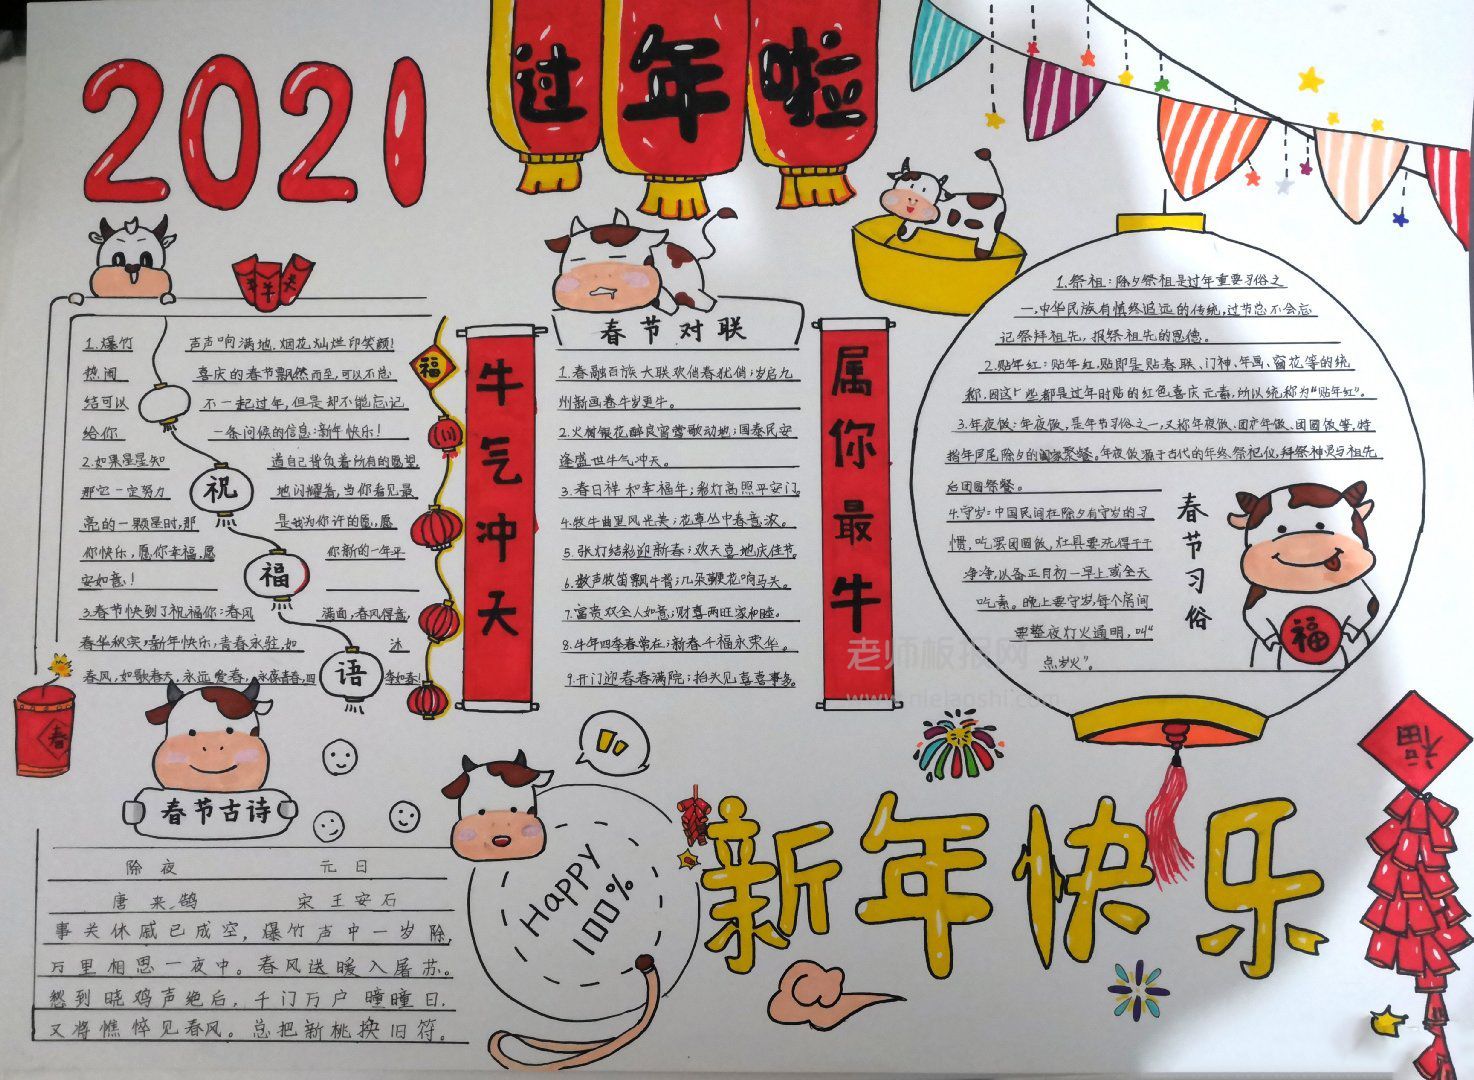 2021
过年啦
牛羊大
1.爆竹 声声响满地.烟花灿烂印笑颜!
热闹 喜庆的春节飘然而至,可以不总
结可以 不一起过年,但是却不能忘记
给你 一条问候的信息:新年快乐!
2.如果星星知 道自己背负着所有的愿望
那它一定努力 地闪耀着,当你看见最
亮的一颗星时,那 是我为你许的愿,愿
你快乐,愿你幸福,愿 你新的一年平
安如意!
3.春节快到了祝福你:春风 满面,春风得意,
春华秋实,新年快乐;青春永驻,如 沐
春风,如歌春天,永远爱春,永葆青春,四 季如春!
祝
福
语
福
牛气冲天
春节对联
1.春融百族大联欢俏春犹俏;岁启九
州新画卷牛岁更牛。
2.火树银花醉良宵莺歌动地;国泰民安
逢盛世牛气冲天。
3.春日祥和幸福年;彩灯高照平安门
4.牧牛曲里风光美;花草丛中春意浓。
5.张灯结彩迎新春;欢天喜地庆佳节
6.数声牧笛飘牛背;几朵鞭花响马天。
7.富贵双全人如意;财喜两旺家和睦。
8.牛年四季春常在;新春千福永荣华。
9.开门迎春春满院;抬头见喜喜事多。
属你最牛
1.祭祖:除夕祭祖是过年重要习俗之
一,中华民族有慎终追远的传统,过节总不会忘
记祭拜祖先,报祭祖先的恩德。
2.贴年红:贴年红贴即是贴春联、门神、年画、窗花等的统
称,因这些都是过年时贴的红色喜庆元素,所以统称为"贴年红"。
3.年夜饭:年夜饭,是年节习俗之一,又称年夜饭、团年饭、团圆饭等,特
指年尾除夕的阖家聚餐。年夜饭源于古代的年终祭祀仪,拜祭神灵与祖先
后团圆聚餐。
4.守岁:中国民间在除夕有守岁的习
惯,吃罢团圆饭,灶具要洗得干干
净净,以备正月初一早上或全天
吃素。晚上要守岁,每个房间
要整夜灯火通明,叫"
点岁火"。
春节习俗
福
老师板报网
春
春节古诗
除夜 元日
唐 来鹄 宋 王安石
事关休戚已成空, 爆竹声中一岁除,
万里相思一夜中。 春风送暖入屠苏。
愁到晓鸡声绝后, 千门万户曈曈日,
又将憔悴见春风。 总把新桃换旧符。
HAPPY
100%
新年快乐
福